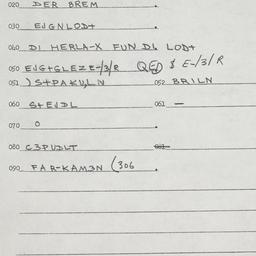 020 DER BREM
030 EJGNLOD+
040 DI HERLA-X FUN DI LOD+
050 EJG+GLEZE-/3/R QED $ E-/3/R
051 )S+PAKULN 052 BRILN
060 S+EJDL 061 —
070 O
080 C3PUDLT
090 FAR-KAM3N (306